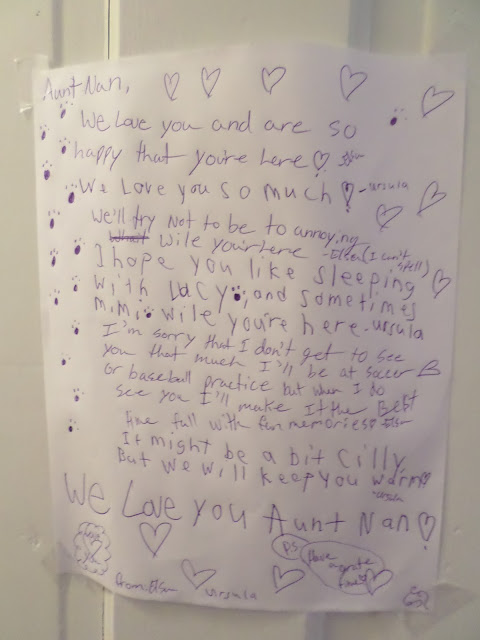 Aunt Nan,
We Love you and are so
happy that you're here
We Love you so much! -ursula
We'll try Not to be to annoying
wile you'r here -Elsa (I can't
spell)
I hope you like sleeping
with Lucy, and sometimes
Mimi wile you're here -ursula
I'm sorry that I don't get to see
you that much I'll be at soccer
or baseball practice but when I do
see you I'll make It the Best
time full with fun memories
It might be a bit cilly
But we will keep you warm
-ursula
We Love you Aunt Nan!
P.S
Have
a grate
from
ursula